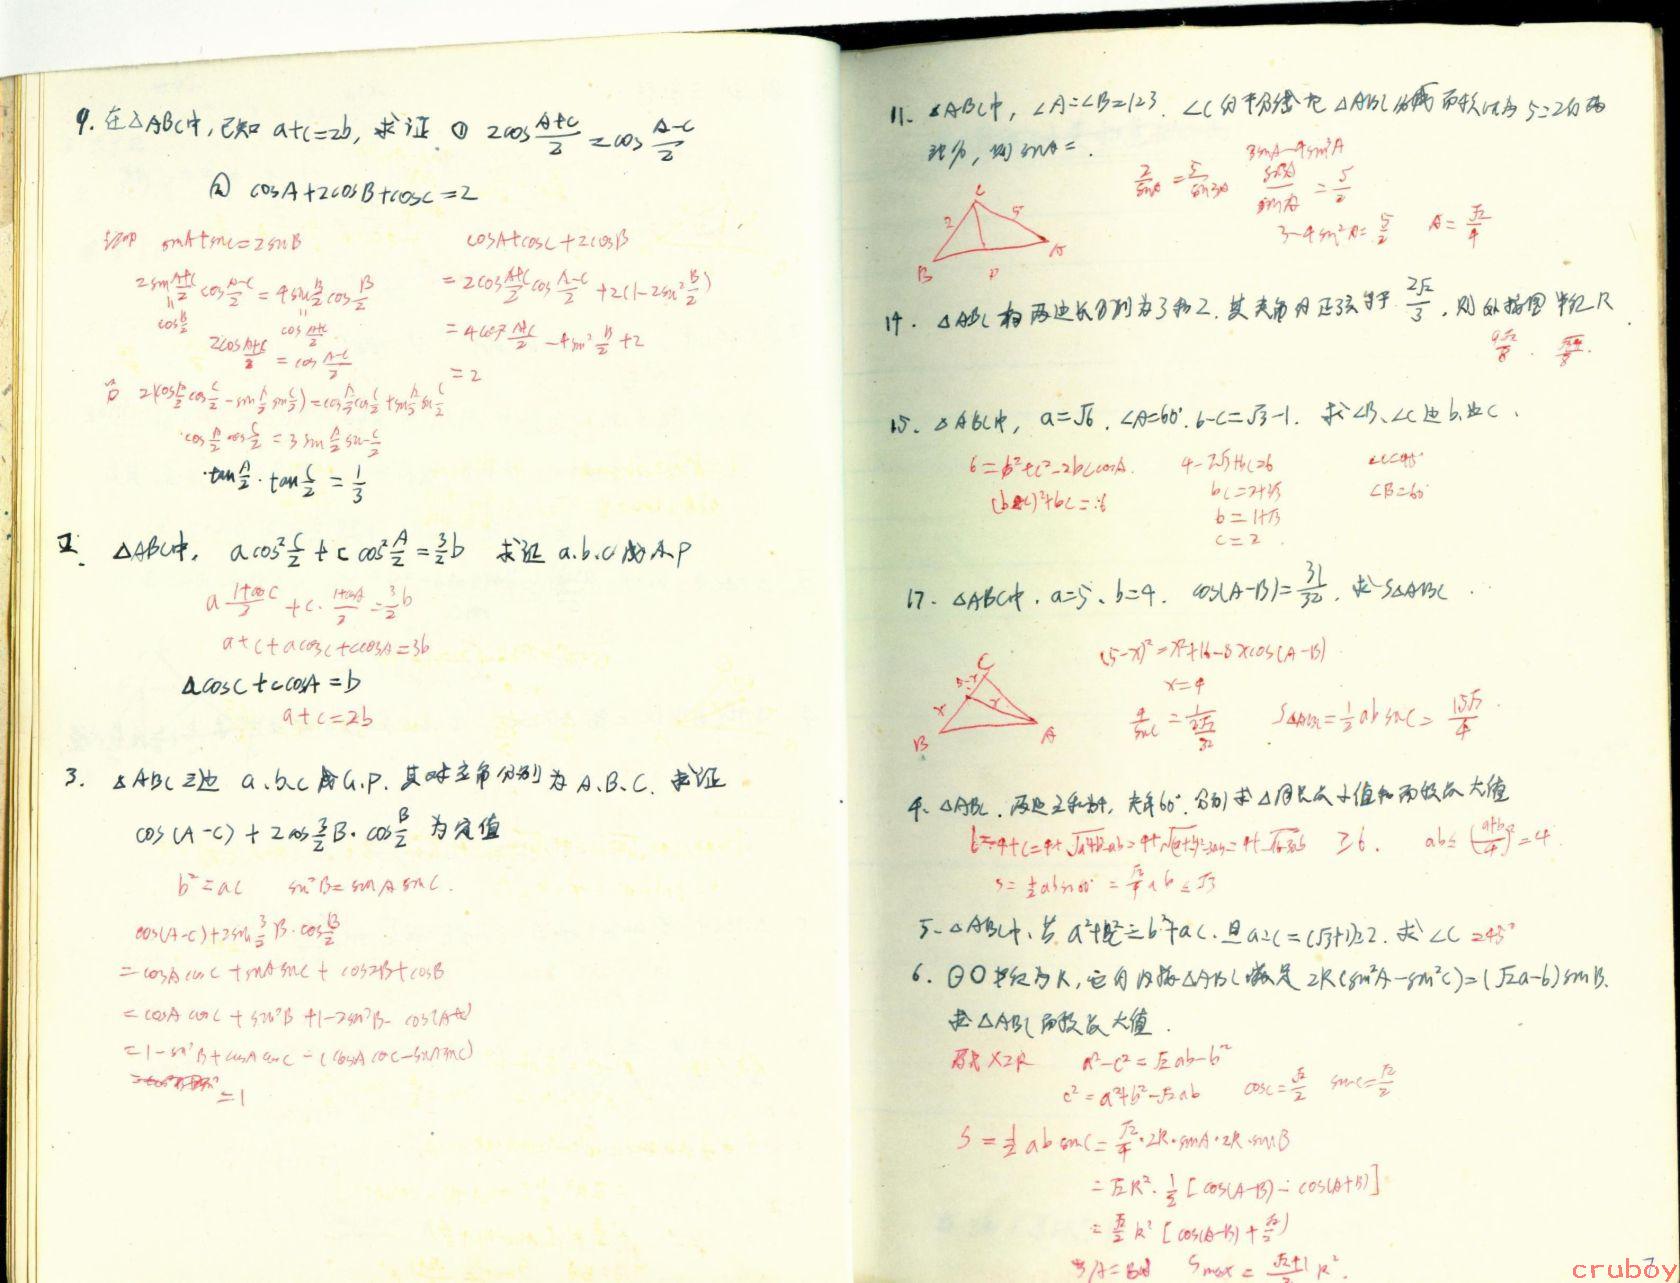 9. 在△ABC中,已知 a+c=2b, 求证. ① 2cos(A+C)/2 = cos(A-C)/2
② cosA+2cosB+cosC=2
sinA+sinC=2sinB
2sin(A+C)/2 cos(A-C)/2 = 4sin B/2 cos B/2
cos B/2 cos (A+C)/2
2cos(A+C)/2 = cos(A-C)/2
2(cos A/2 cos C/2 - sin A/2 sin C/2) = cos A/2 cos C/2 + sin A/2 sin C/2
cos A/2 cos C/2 = 3 sin A/2 sin C/2
tan A/2 · tan C/2 = 1/3
cosA+cosC+2cosB
= 2cos(A+C)/2 cos(A-C)/2 + 2(1-2sin² B/2)
= 4cos² (A+C)/2 - 4sin² B/2 + 2
= 2
△ABC中, a cos² C/2 + c cos² A/2 = 3/2 b 求证 a.b.c 成A.P
a (1+cosC)/2 + c· (1+cosA)/2 = 3/2 b
a+c+acosC+ccosA=3b
acosC+ccosA=b
a+c=2b
3. △ABC三边 a.b.c成G.P. 其对应角分别为A.B.C. 求证
cos(A-C)+2cos 3/2 B·cos B/2 为定值
b²=ac sin²B=sinA sinC.
cos(A-C)+2sin 3/2 B·cos B/2
=cosA cosC+sinA sinC+cos2B+cosB
=cosA cosC+sin²B+1-2sin²B-cos(A+C)
=1-sin²B+cosA cosC-(cosA cosC-sinA sinC)
=1
11. △ABC中, ∠A=∠B=1:2:3. ∠C的平分线把△ABC分成面积比为5:2的两
部分, 则 sinA=.
2/sinA = 5/sin3A
3sinA-4sin³A
sin3A/sinA = 5/2
3-4sin²A=5/2 A=√2/4
C 2 5 B D A
14. △ABC的两边长分别为3和2. 其夹角的正弦等于 2√2/3, 则外接圆半径R
9√2/8.
15. △ABC中, a=√6, ∠A=60°. b-c=√3-1. 求∠B、∠C边b.边c.
6=b²+c²-2bc cosA.
(b-c)²+bc=6
4-2√3+bc=6
bc=2+2√3
b=1+√3
c=2
∠C=45°
∠B=60°
17. △ABC中. a=5、b=4. cos(A-B)=31/32. 求S△ABC
(5-x)²=x²+16-8xcos(A-B)
x=4
C 5-x x x B A
S△ABC=1/2 ab sinC= 15√7/4
4. △ABC. 两边之和为4, 夹角60°. 分别求△周长最小值和面积最大值
≥6. ab≤ =4
S=1/2 ab sin60°= ab≤√3
5. △ABC中, 若a²+c²=b²+ac. 且a:c=(√3+1):2. 求∠C =45°
6. ⊙O半径为R, 它的内接△ABC满足 2R(sin²A-sin²C)=(√2a-b)sinB.
求△ABC面积最大值.
两式×2R a²-c²=√2ab-b²
c²=a²+b²-√2ab cosC=√2/2 sinC=√2/2
S=1/2 ab sinC=√2/4·2R·sinA·2R·sinB
=√2R²·1/2[cos(A-B)-cos(A+B)]
=√2/2 R²[cos(A-B)+√2/2]
当A=B时 Smax= (√2+1)/2 R².
cruboy